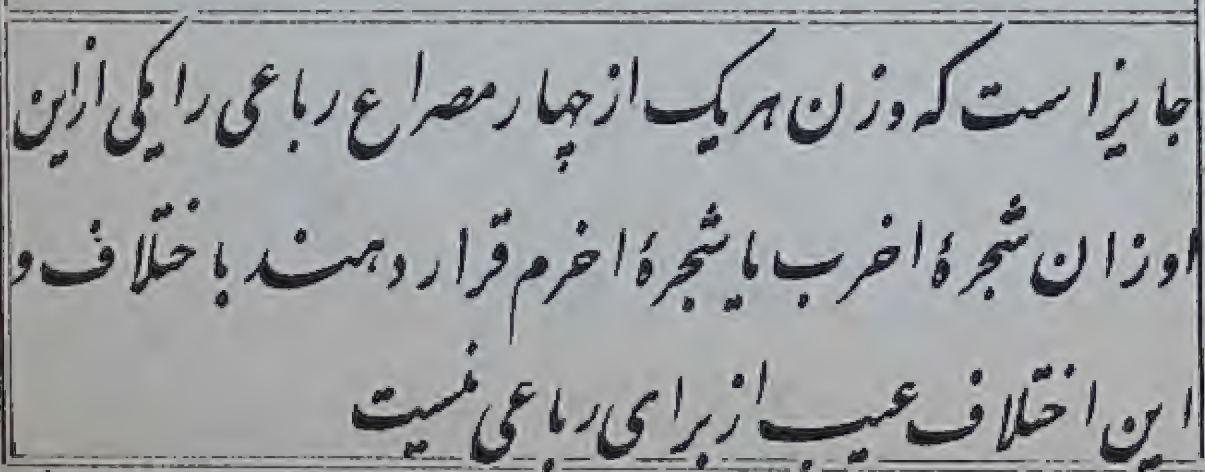 جایز است که وزن هر یک از چهار مصراع رباعی را یکی از این
اوزان شجرهٔ اخرب یا شجرهٔ اخرم قرار دهند باختلاف و
این اختلاف عیب از برای رباعی نیست